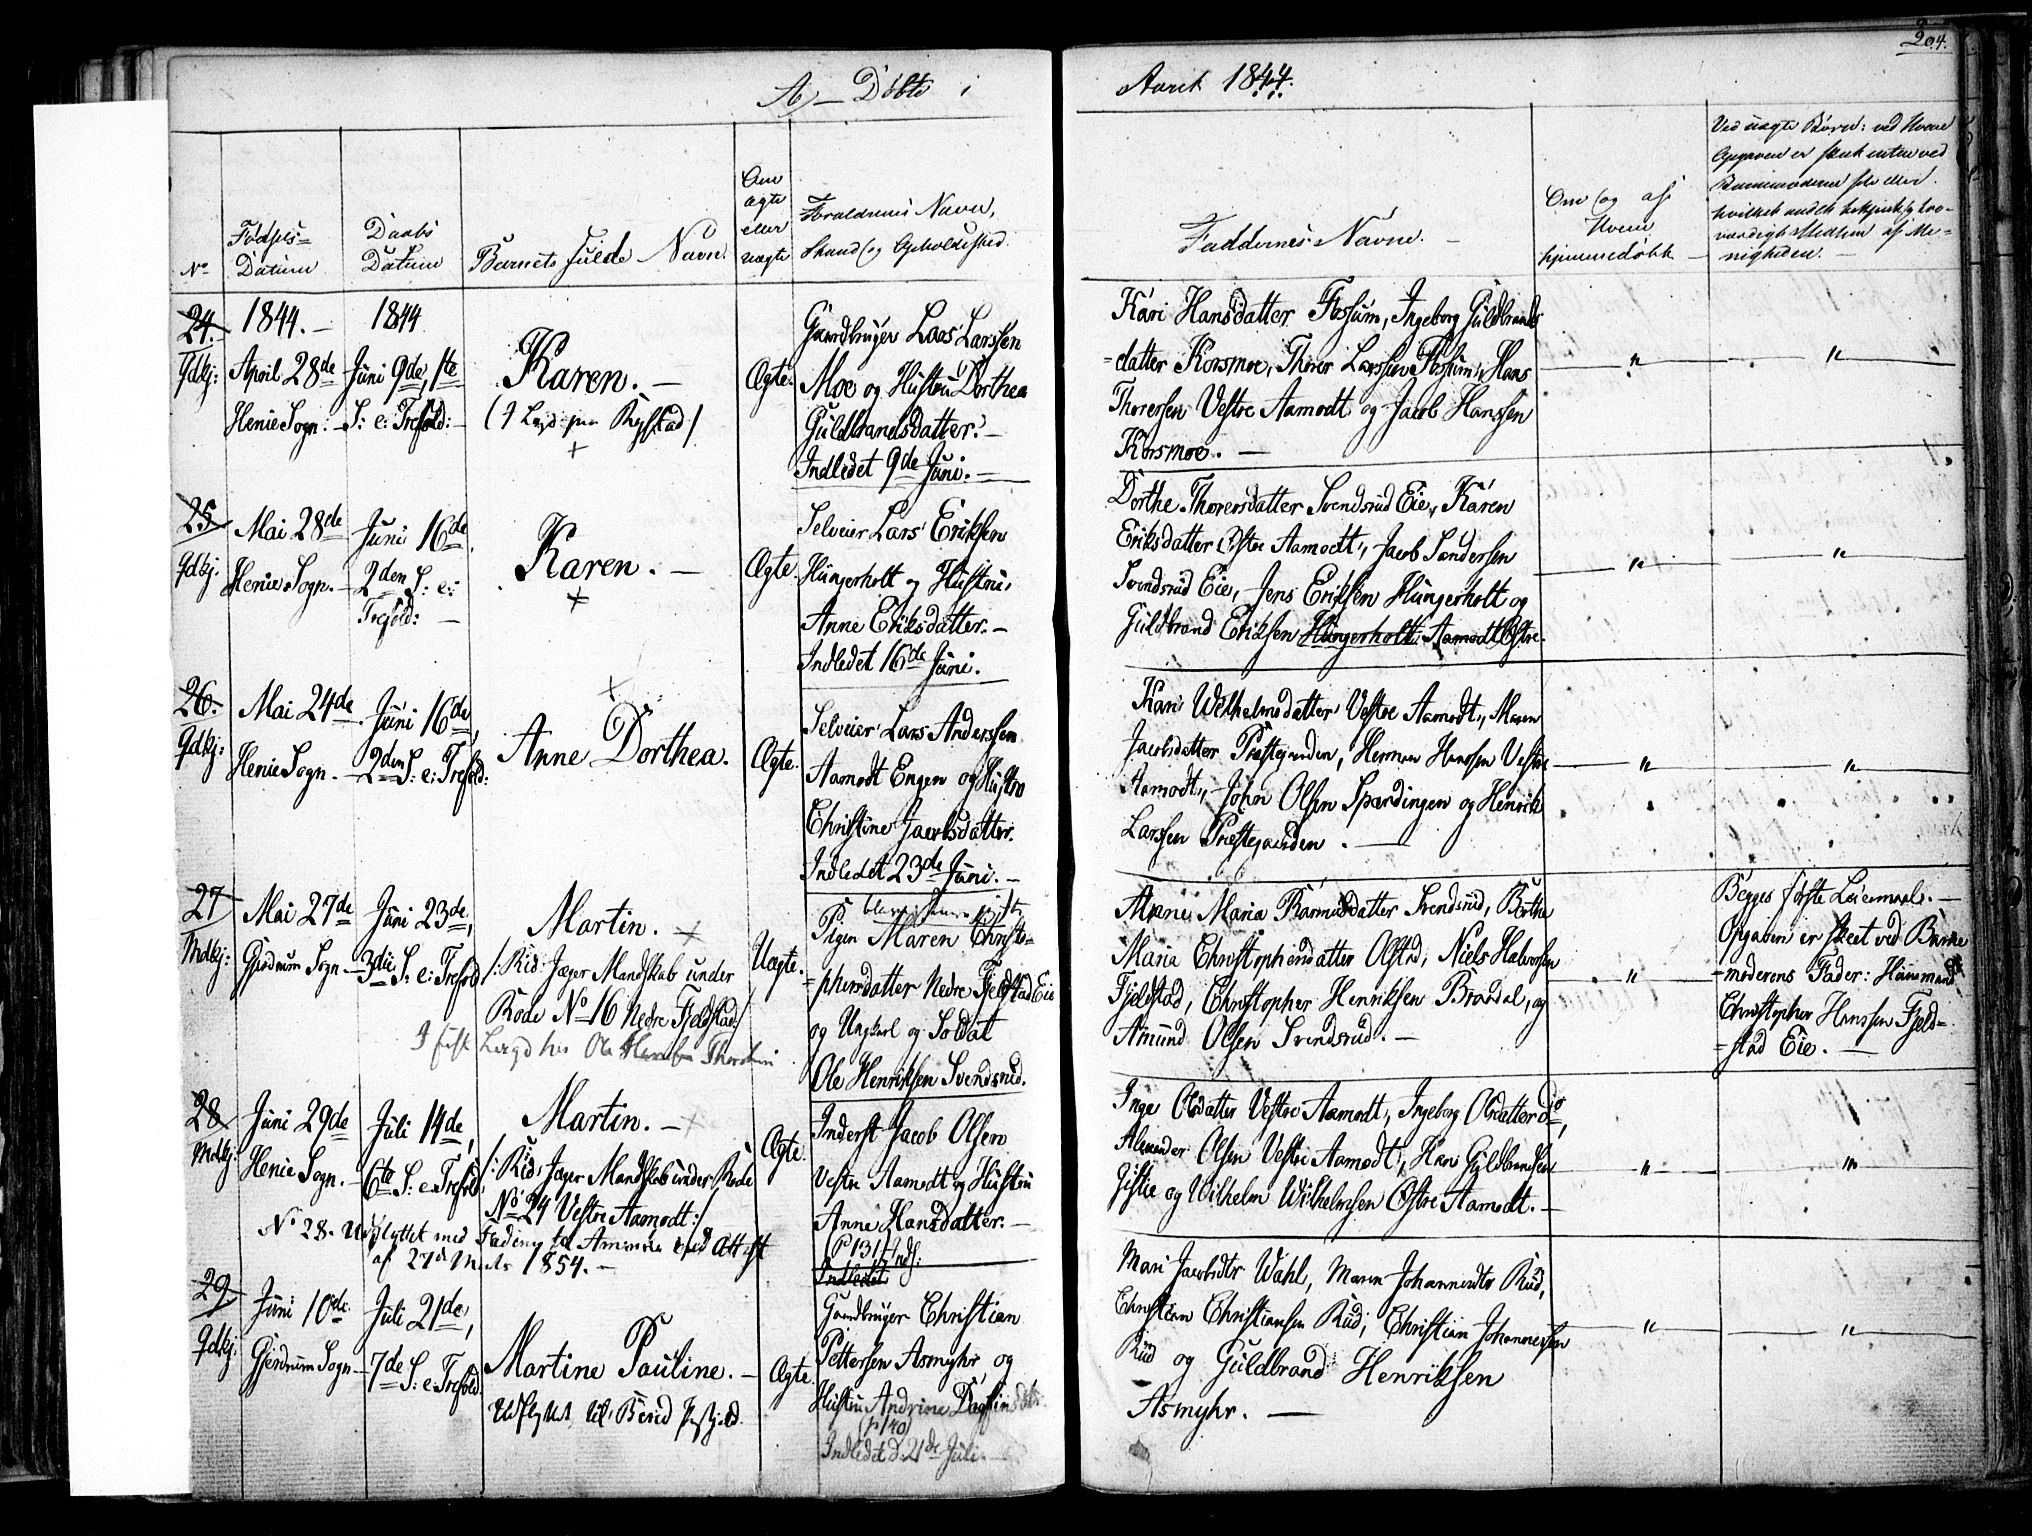 204.
A, – Døbte i Aaret 1844.
No
Fødsels-
Datum
Daabs
Datum
Barnets fulde Navn.
Om
ægte
eller
uægte
Forældrenes Navn,
Stand og Opholdssted.
Faddernes Navne. –
Om og af
Hvem
hjemmedøbt
Ved uægte Børn: ved Hvem
Opgaven er skeet enten ved
Barnemoderen selv eller
hvilket andet bekjendt og tro-
værdigt Medlem af Me-
nigheden. –
24.
Qdkj:
1844. –
April 28de
Henie Sogn. –
1844
Juni 9de, 1ste
S: e: Trefold: –
Karen. –
Ægte.
Gaardbruger Lars Larssen
Moe og Hustru Dorthea
Guldbrandsdatter. –
Indledet 9de Juni. –
Kari Hansdatter Fossum, Ingeborg Guldbrands
-datter Korsmoe, Thorer Larssen Fossum, Hans
Thorersen Vestre Aamodt og Jacob Hanssen
Korsmoe. –
"
"
25
Qdkj.
Mai 28de
Henie Sogn. –
Juni 16de
2den S: e:
Trefold: –
Karen. –
Ægte.
Selveier Lars Eriksen
Hungerholt og Hustru
Anne Eriksdatter. –
Indledet 16de Juni.
Dorthe Thorersdatter Svendsrud Eie, Karen
Eriksdatter Østre Aamodt, Jacob Sandersen
Svendsrud Eie, Jens Eriksen Hungerholt og
Guldbrand Eriksen Hungerholt Aamodt Østre.
"
"
26.
Qdkj:
Mai 24de
Henie Sogn. –
Juni 16de,
2den S: e: Trefold:
Anne Dorthea.
Ægte.
Selveier Lars Anderssen
Aamodt Engen og Hustro
Christine Jacobsdatter.
Indledet 23de Juni. –
Kari Wilhelmsdatter Vestre Aamodt, Maren
Jacobsdatter Præstegaarden, Herman Hanssen Vestre
Aamodt, John Olsen Spærdingen og Henrik
Larssen Præstegaarden. –
"
"
27
Mdkj:
Mai 27de
Gjerdrum Sogn –
Juni 23de,
3die S: e: Trefold
Martin.
/: Rid: Jæger Mandskab under
Rode No 16 Nedre Fjeldstad:/
Uægte.
Pigen Maren Christo-
-phersdatter Nedre Fjeldstad Eie
og Ungkarl og Soldat
Ole Henriksen Svendsrud.
Anne Maria Rasmusdatter Svendsrud, Berthe
Maria Christophersdatter Olstad, Niels Halvorsen
Fjeldstad, Christopher Henriksen Braadal, og
Amund Olsen Svendsrud. –
"
Begges første Leiermaal. –
Opgaven er skeet ved Barne
-moderens Fader: Huusmand
Christopher Hanssen Fjeld-
-stad Eie. –
28
Mdkj:
Juni 29de
Henie Sogn. –
Juli 14de,
6te S: e: Trefold.
Martin. –
/: Rid: Jæger Mandskab under Rode
No 24 Vestre Aamodt:/
No 28. Udflyttet med
af 27de Marts 1854. –
Ægte.
Inderst Jacob Olsen
Vestre Aamodt og Hustru
Anne Hansdatter. –
(P 131) Inds:
Indledet
Inger Olsdatter Vestre Aamodt, Ingeborg Olsdatter do,
Alexander Olsen Vestre Aamodt, Hans Guldbrandsen
Gistie og Wilhelm Wilhelmsen Østre Aamodt. –
"
"
29
Qdkj:
Juni 10de
Gjerdrum Sogn –
Juli 21de,
7de S: e: Trefold.
Martine Pauline. –
Udflyttet til
Ægte.
Gaardbruger Christian
Pettersen Asmyhr og
Hustru Andrine
(p 140)
Indledet d. 21de Juli. –
Mari Jacobsdtr Wahl, Maren Johannesdtr Rud,
Christian Christiansen Rud, Christian Johannessen
Rud og Guldbrand Henriksen
Asmyhr. –
"
"